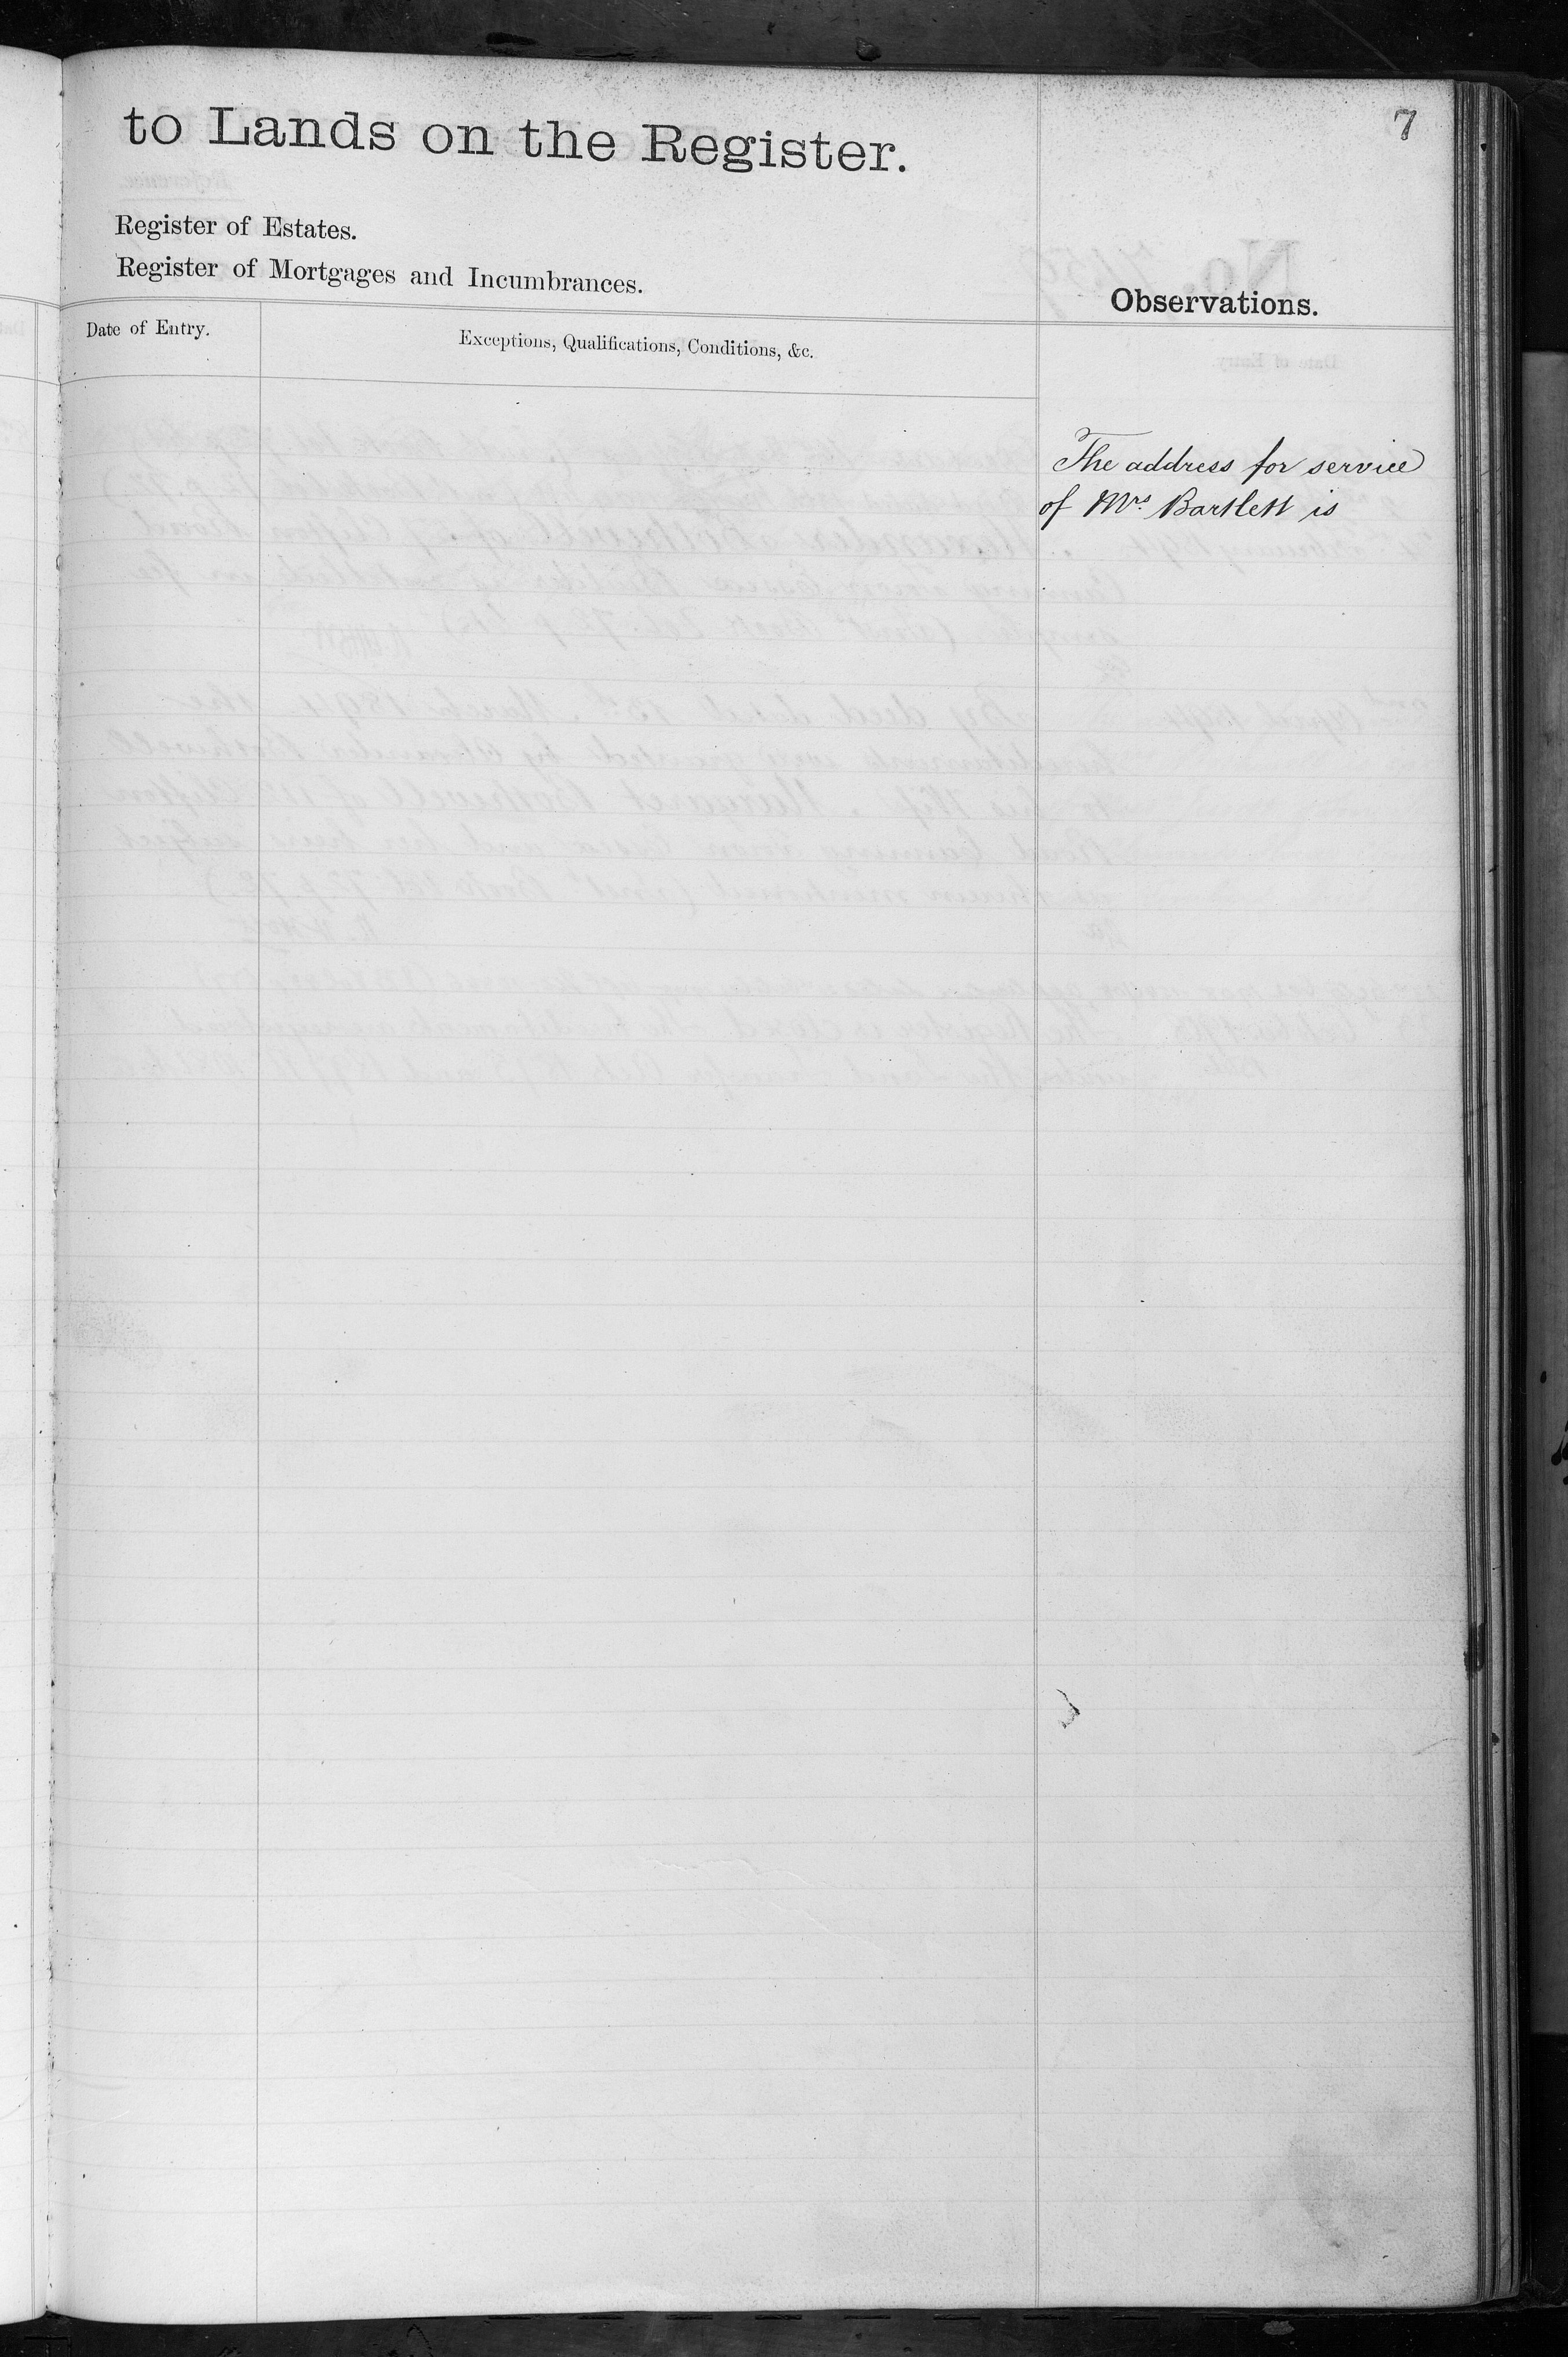 7
to Lands on the Register.
Register of Estates.
Register of Mortgages and Incumbrances.
Observations.
Date of Entry.
Exceptions, Qualifications, Conditions, &c.
The address for service
of Mrs Bartlett is